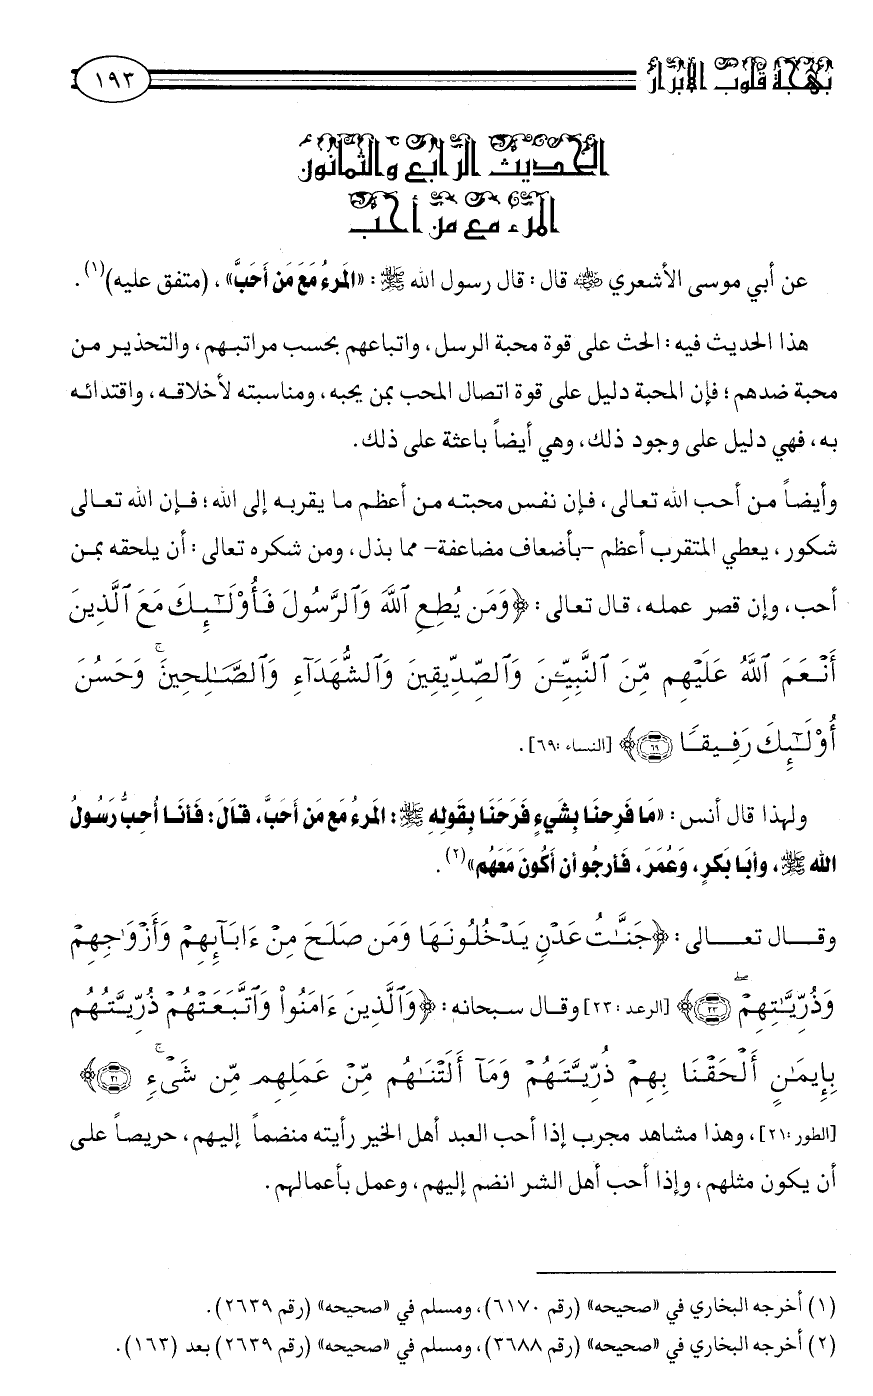 بهجة قلوب الأبرار ١٩٣
الحديث الرابع والثمانون
المرء مع من أحب
عن أبي موسى الأشعري ﵁ قال: قال رسول الله ﷺ: «المَرءُ مَعَ مَن أَحَبَّ»، (متفق عليه)(١).
هذا الحديث فيه: الحث على قوة محبة الرسل، واتباعهم بحسب مراتبهم، والتحذير من
محبة ضدهم؛ فإن المحبة دليل على قوة اتصال المحب بمن يحبه، ومناسبته لأخلاقه، واقتدائه
به، فهي دليل على وجود ذلك، وهي أيضاً باعثة على ذلك.
وأيضاً من أحب الله تعالى، فإن نفس محبته من أعظم ما يقربه إلى الله؛ فإن الله تعالى
شكور، يعطي المتقرب أعظم -بأضعاف مضاعفة- مما بذل، ومن شكره تعالى: أن يلحقه بمن
أحب، وإن قصر عمله، قال تعالى: ﴿وَمَن يُطِعِ ٱللَّهَ وَٱلرَّسُولَ فَأُوْلَٰٓئِكَ مَعَ ٱلَّذِينَ
أَنۡعَمَ ٱللَّهُ عَلَيۡهِم مِّنَ ٱلنَّبِيِّـۧنَ وَٱلصِّدِّيقِينَ وَٱلشُّهَدَآءِ وَٱلصَّٰلِحِينَۚ وَحَسُنَ
أُوْلَٰٓئِكَ رَفِيقٗا ٦٩﴾ [النساء: ٦٩].
ولهذا قال أنس: «مَا فَرِحنَا بِشَيءٍ فَرَحَنَا بِقَولِهِ ﷺ: المَرءُ مَعَ مَن أَحَبَّ، قَالَ: فَأنَا أُحِبُّ رَسُولُ
الله ﷺ، وأبَا بَكرٍ، وَعُمَرَ، فَأرجُو أن أكُونَ مَعَهُم»(٢).
وقال تعالى: ﴿جَنَّٰتُ عَدۡنٖ يَدۡخُلُونَهَا وَمَن صَلَحَ مِنۡ ءَابَآئِهِمۡ وَأَزۡوَٰجِهِمۡ
وَذُرِّيَّٰتِهِمۡۖ ٢٣﴾ [الرعد: ٢٣] وقال سبحانه: ﴿وَٱلَّذِينَ ءَامَنُواْ وَٱتَّبَعَتۡهُمۡ ذُرِّيَّتُهُم
بِإِيمَٰنٍ أَلۡحَقۡنَا بِهِمۡ ذُرِّيَّتَهُمۡ وَمَآ أَلَتۡنَٰهُم مِّنۡ عَمَلِهِم مِّن شَيۡءٖۚ ٢١﴾
[الطور: ٢١]، وهذا مشاهد مجرب إذا أحب العبد أهل الخير رأيته منضماً إليهم، حريصاً على
أن يكون مثلهم، وإذا أحب أهل الشر انضم إليهم، وعمل بأعمالهم.
(١) أخرجه البخاري في «صحيحه» (رقم ٦١٧٠)، ومسلم في «صحيحه» (رقم ٢٦٣٩).
(٢) أخرجه البخاري في «صحيحه» (رقم ٣٦٨٨)، ومسلم في «صحيحه» (رقم ٢٦٣٩) بعد (١٦٣).